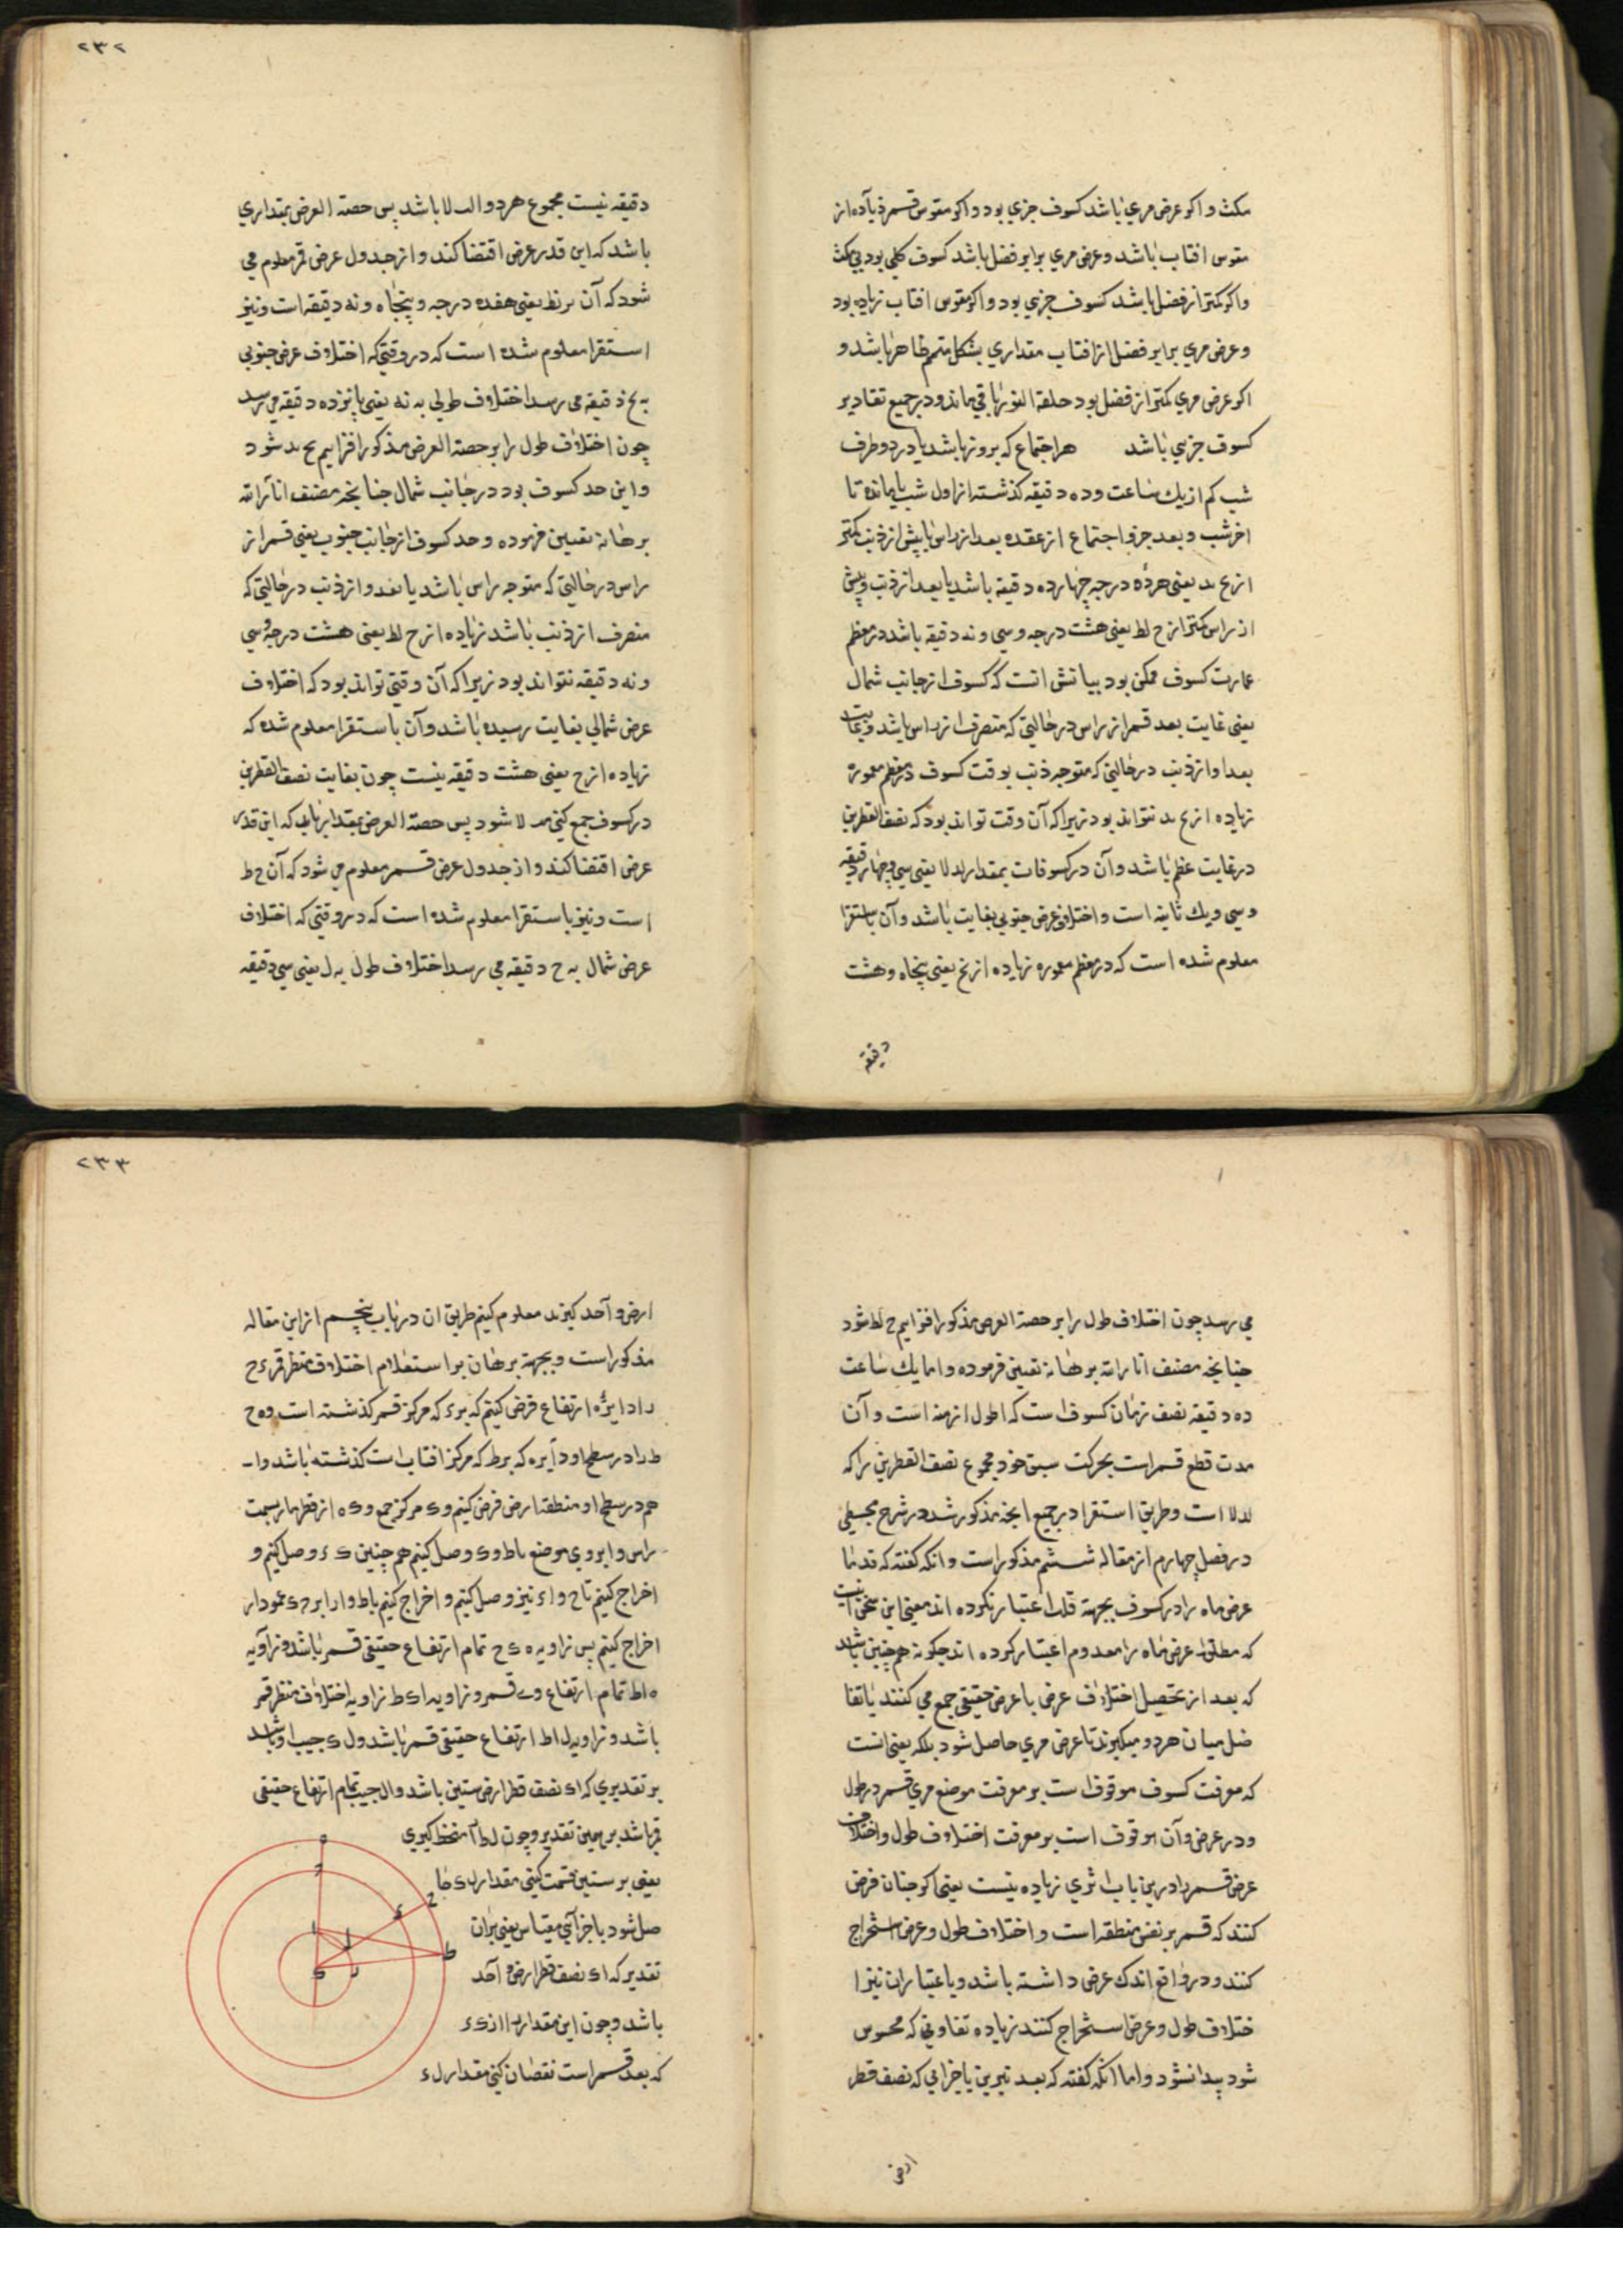 مکث و اکر عرض مری باشد کسوف جزی بود و اکر مقوس قسمر زیاده از
مقوس افتاب باشد و عرض مری برابر فضل باشد کسوف کلی بود بی مکث
واکر کمتر از فضل باشد کسوف جزی بود و اکر مقوس افتاب زیاده بود
و عرض مری برابر فضل از افتاب مقداری بشکل متمم ظاهر باشد و
اکر عرض مری کمتر از فضل بود حلقة النور باقی ماند و در جمیع تقادیر
کسوف جزیی باشد هر اجتماع که بروز باشد یا در دو طرف
شب کم از یك ساعت و ده دقیقه کذشته از اول شب یا مانده تا
اخر شب و بعد جزو اجتماع از عقده بعد از راس یا پیش از ذنب کمتر
از یح ید یعنی هژده درجه چهارده دقیقه باشد یا بعد از ذنب و پیش
از راس کمتر از ح لط یعنی هشت درجه و سی و نه دقیقه باشد در معظم
عمارت کسوف ممکن بود بیانش انست که کسوف از جانب شمال
یعنی غایت بعد قمر از راس در حالتی که منصرف از راس باشد و غایت
بعد او از ذنب در حالتی که متوجه ذنب بوقت کسوف در معظم معموره
زیاده از یح ید نتواند بود زیرا که آن وقت تواند بود که نصف القطرین
در غایت عظم باشد و آن در کسوفات بمقدار لد لا یعنی سی و چهار دقیقه
و سی و یك ثانیه است و اختلاف عرض جنوبی بغایت باشد و آن باستقرا
معلوم شده است که در معظم معموره زیاده از نح یعنی پنجاه و هشت
دقیقه
٢٣٢
دقیقه نیست مجموع هر دو الب لا باشد پس حصة العرض بمقداری
باشد که این قدر عرض اقتضا کند و از جدول عرض قمر معلوم می
شود که آن یر نط یعنی هفده درجه و پنجاه و نه دقیقه است و نیز
استقرا معلوم شده است که در وقتی که اختلاف عرض جنوبی
به نح دقیقه می رسد اختلاف طولی به یه یعنی پانزده دقیقه می رسد
چون اختلاف طول را بر حصة العرض مذکور افزاییم یح ید شود
و این حد کسوف بود در جانب شمال چنانچه مصنف انار الله
برهانه تعیین فرموده و حد کسوف از جانب جنوب یعنی قسمر از
راس در حالتی که متوجه راس باشد یا بعد او از ذنب در حالتی که
منصرف از ذنب باشد زیاده از ح لط یعنی هشت درجه و سی
و نه دقیقه نتواند بود زیرا که آن وقتی تواند بود که اختلاف
عرض شمالی بغایت رسیده باشد و آن باستقرا معلوم شده که
زیاده از ح یعنی هشت دقیقه نیست چون بغایت نصف القطرین
در کسوف جمع کنی مب لا شود پس حصة العرض بمقدار باید که این قدر
عرض اقتضا کند و از جدول عرض قسمر معلوم می شود که آن ح ط
است و نیز باستقرا معلوم شده است که در وقتی که اختلاف
عرض شمال به ح دقیقه می رسد اختلاف طول به ل یعنی سی دقیقه
می رسد چون اختلاف طول را بر حصة العرض مذکور افزاییم ح لط شود
چنانچه مصنف انار الله برهانه تعیین فرموده و اما یك ساعت
ده دقیقه نصف زمان کسوف است که اطول ازمنه است و آن
مدت قطع قسمر است بحرکت سبق خود مجموع نصف القطرین را که
لد لا است و طریق استقرا در جمیع انچه مذکور شد در شرح مجسطی
در فصل چهارم از مقاله ششم مذکور است و انکه کفته که قدما
عرض ماه را در کسوف بجهة قلت اعتبار نکرده اند معنی این سخن آنست
که مطلق عرض ماه را معدوم اعتبار کرده اند چکونه هم چنین باشد
که بعد از تحصیل اختلاف عرض با عرض حقیقی جمع می کنند یا تفا
ضل میان هر دو میکیرند تا عرض مری حاصل شود بلکه یعنی انست
که معرفت کسوف موقوف است بر معرفت موضع مری قسمر در طول
و در عرض و آن موقوف است بر معرفت اختلاف طول و اختلاف
عرض قسمر را درین باب اثری زیاده نیست یعنی اکر چنان فرض
کنند که قسمر بر نفس منطقه است و اختلاف طول و عرض استخراج
کنند و در واقع اندك عرض داشته باشد و باعتبار ان نیز ا
ختلاف طول و عرض استخراج کنند زیاده تفاوتی که محسوس
شود پیدا نشود و اما انکه کفته که بعد نیرین باجزایی که نصف قطر
ارض
٢٣٣
ارض و آحد کیرند معلوم کنیم طریق ان در باب پنجم از این مقاله
مذکور است و بجهة برهان بر استعلام اختلاف منظر قمر ء ح
را دایرهٔ ارتفاع فرض کنیم که بر ء که مرکز قسمر کذشته است و ه ح
ط را در سطح او دایره که بر ط که مرکز افتاب است کذشته باشد و ا ب
هم در سطح او منطقه ارض فرض کنیم و ک مرکز جمع و ک ه از قطرها بسمت
راس و ا بر وی موضع ناظر و ک وصل کنیم هم چنین ک ء وصل کنیم و
اخراج کنیم تا ح و ا ء نیز وصل کنیم و اخراج کنیم تا ط و از ا بر ح ک عمود ا ر
اخراج کنیم پس زاویه ه ک ح تمام ارتفاع حقیقی قسمر باشد و زاویه
ه ا ط تمام ارتفاع وی قسمر و زاویه ا ک ط زاویه اختلاف منظر قمر
باشد و زاویه ل ا ط ارتفاع حقیقی قسمر باشد و ل ک جیب او باشد
بر تقدیری که ا ک نصف قطر ارض ستین باشد و ا ل جیب تمام ارتفاع حقیقی
قمر باشد بر همین تقدیر و چون ل ط ا منحط کیری
یعنی بر ستین قسمت کنی مقدار ل ک حا
صل شود باجزایی مقیاس یعنی بران
تقدیر که ا ک نصف قطر ارض و آحد
باشد و چون این مقدار را از ک ء
که بعد قسمر است نقصان کنی مقدار ل ء